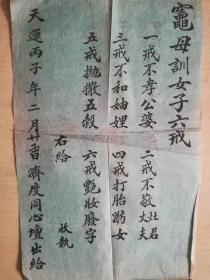 竈母訓女子六戒
一戒不孝公婆　二戒不敬灶君丈夫
三戒不和妯娌　四戒打胎溺女
五戒抛撒五穀　六戒艶妝廢字
右給　收執
天運丙子年二月廿　日濟度同心壇出給